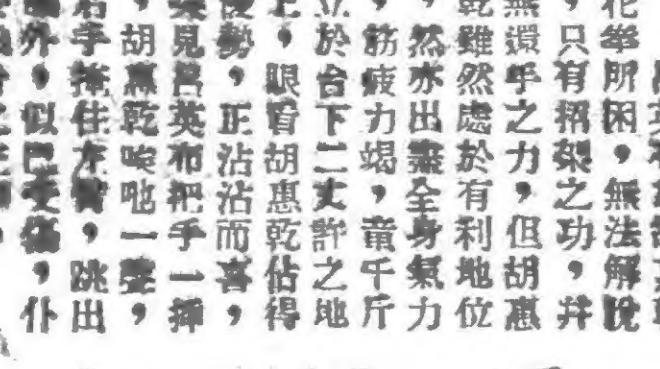 花拳所困，無法解脫
，只有招架之功，并
無還手之力，但胡惠
乾雖然處於有利地位
，然亦出盡全身氣力
，筋疲力竭，童千斤
立於台下二丈許之地
上，眼看胡惠乾佔得
優勢，正沾沾而喜，
見呂英布把手一揮
，胡惠乾唉吔一聲，
右手掩住左臂，跳出
外，似已受傷，仆